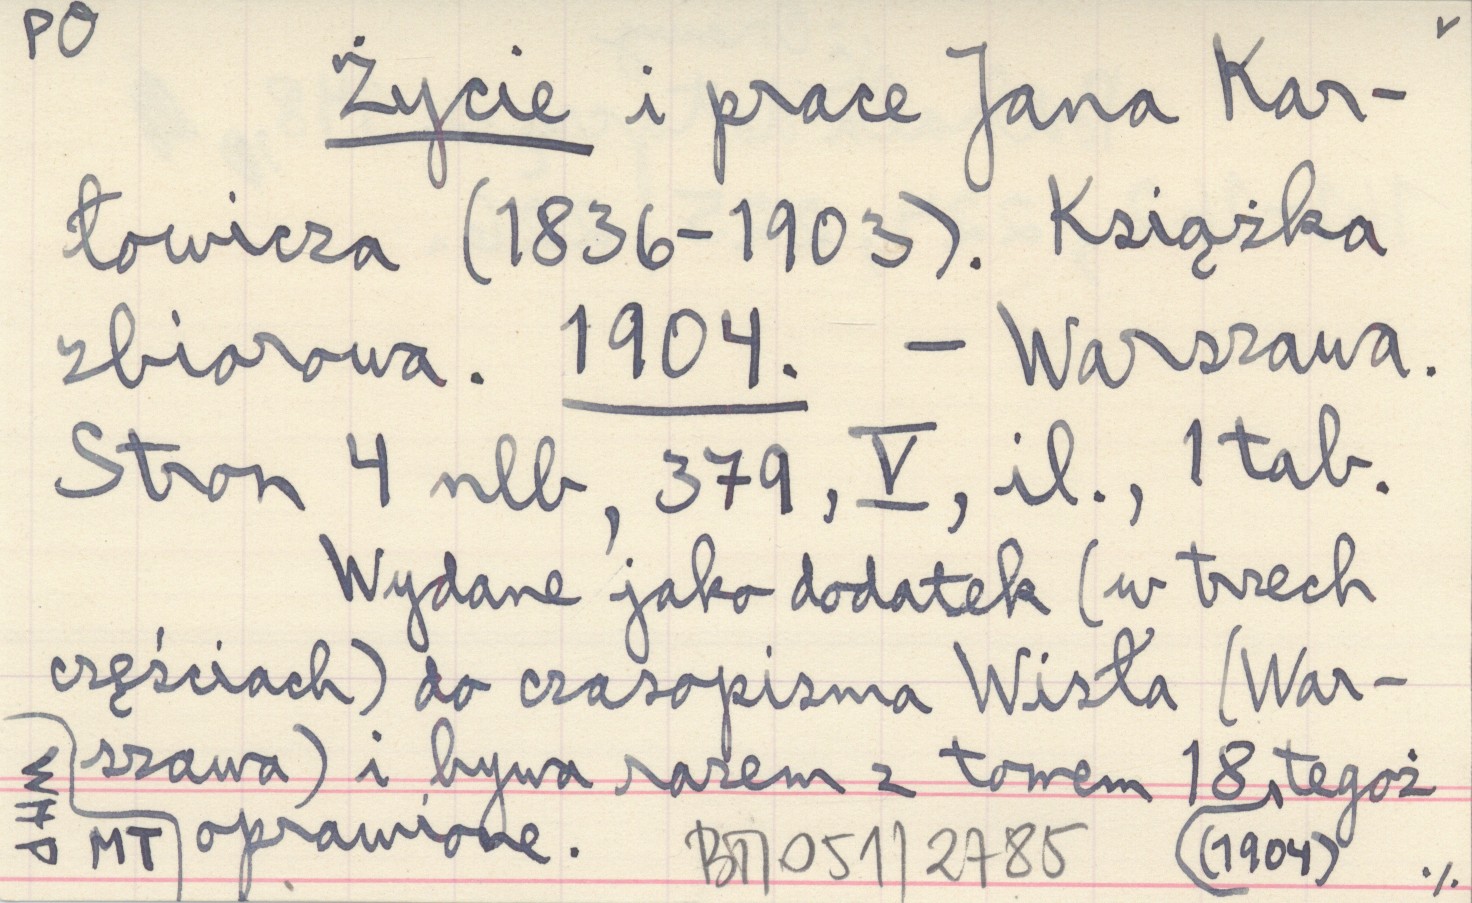 PO
Życie i prace Jana Kar-
łowicza (1836-1903). Książka
zbiorowa. 1904. - Warszawa.
Stron 4 nlb, 379, V, il., 1 tab.
Wydane jako dodatek (w trzech
częściach) do czasopisma Wisła (War-
szawa) i bywa razem z tomem 18 tegoż
(1904)
oprawione.
MT
051 2785
./.